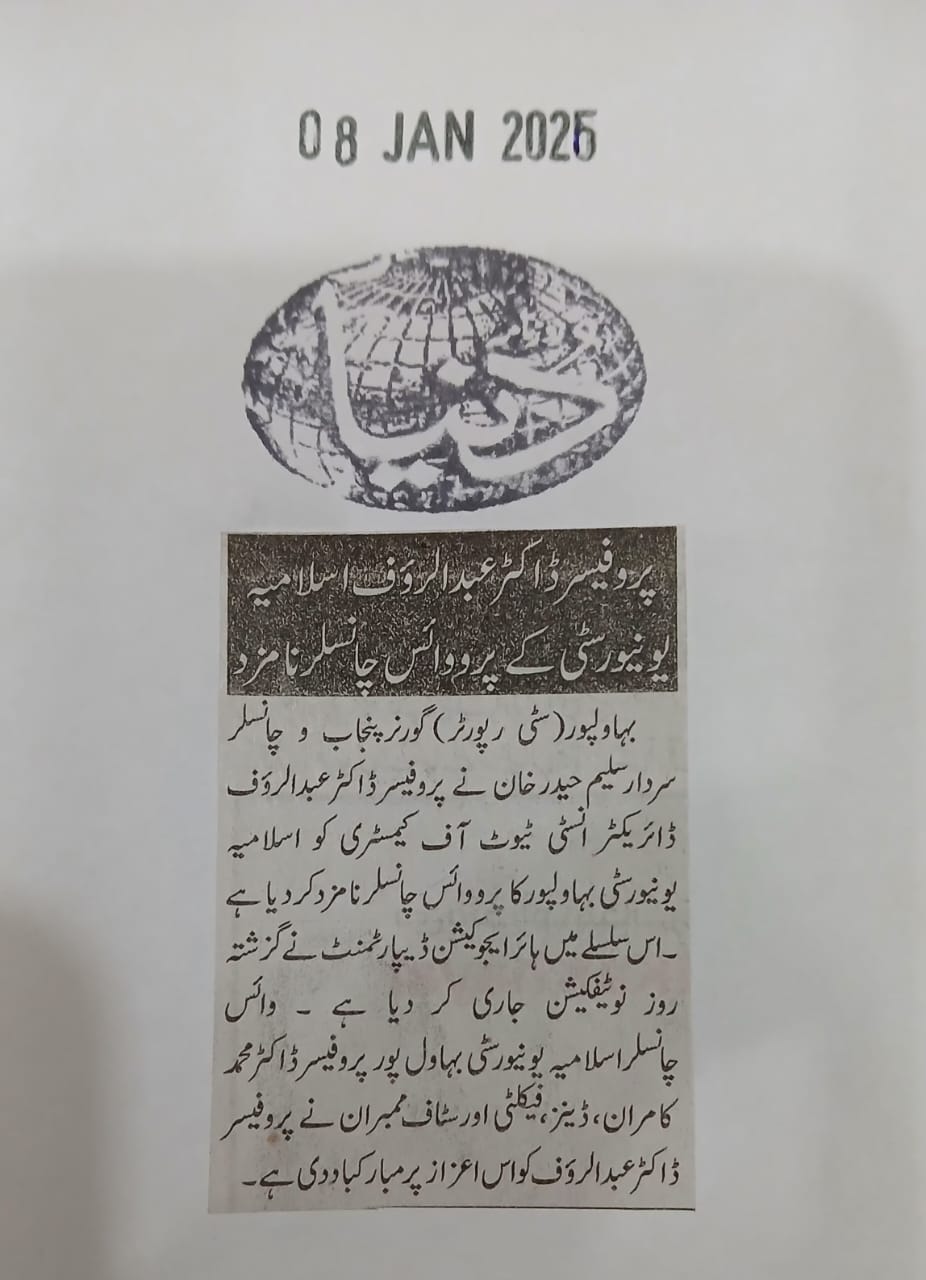 08 JAN 2025
دنیا
پروفیسر ڈاکٹر عبدالرؤف اسلامیہ
یونیورسٹی کے پرووائس چانسلر نامزد
بہاولپور (سٹی رپورٹر) گورنر پنجاب و چانسلر
سردار سلیم حیدر خان نے پروفیسر ڈاکٹر عبدالرؤف
ڈائریکٹر انسٹی ٹیوٹ آف کیمسٹری کو اسلامیہ
یونیورسٹی بہاولپور کا پرووائس چانسلر نامزد کر دیا ہے
۔اس سلسلے میں ہائر ایجوکیشن ڈیپارٹمنٹ نے گزشتہ
روز نوٹیفکیشن جاری کر دیا ہے ۔ وائس
چانسلر اسلامیہ یونیورسٹی بہاول پور پروفیسر ڈاکٹر محمد
کامران، ڈینز، فیکلٹی اور سٹاف ممبران نے پروفیسر
ڈاکٹر عبدالرؤف کو اس اعزاز پر مبارکباد دی ہے۔